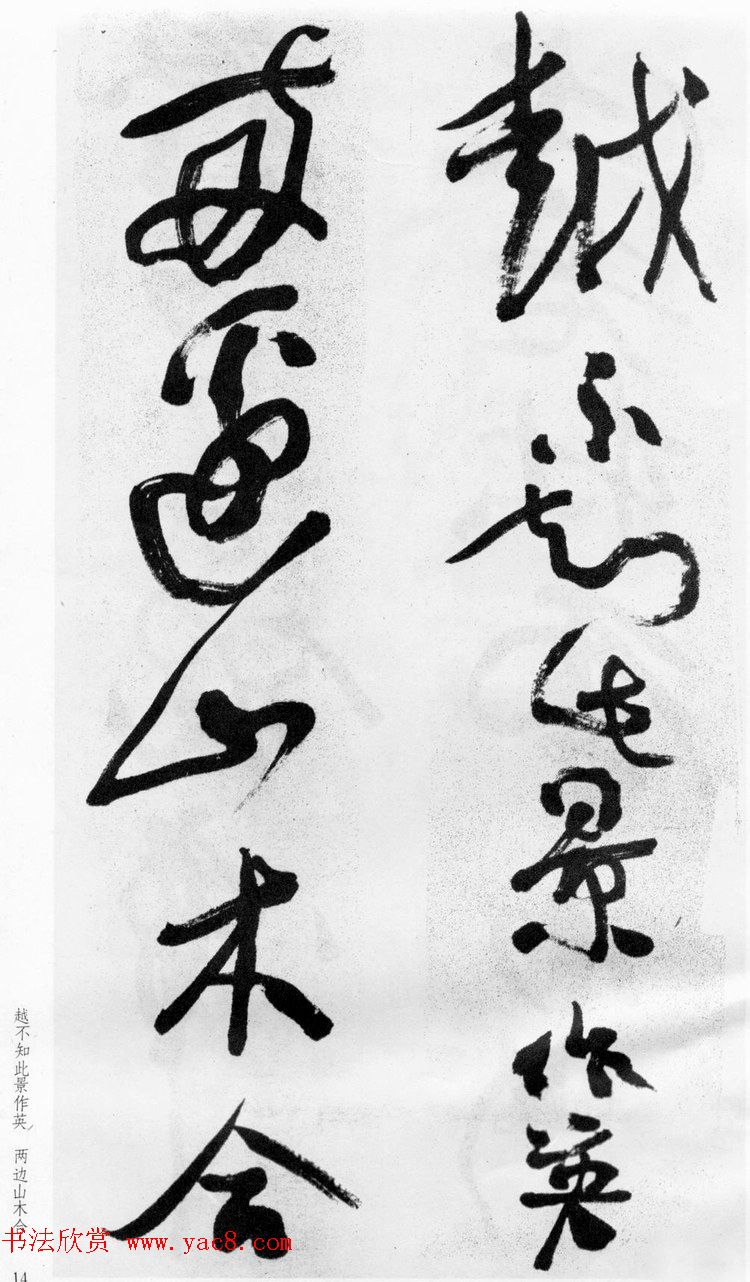 越不知此景作英
两边山木合
越不知此景作英／两边山木合
书法欣赏 www.yac8.com
14